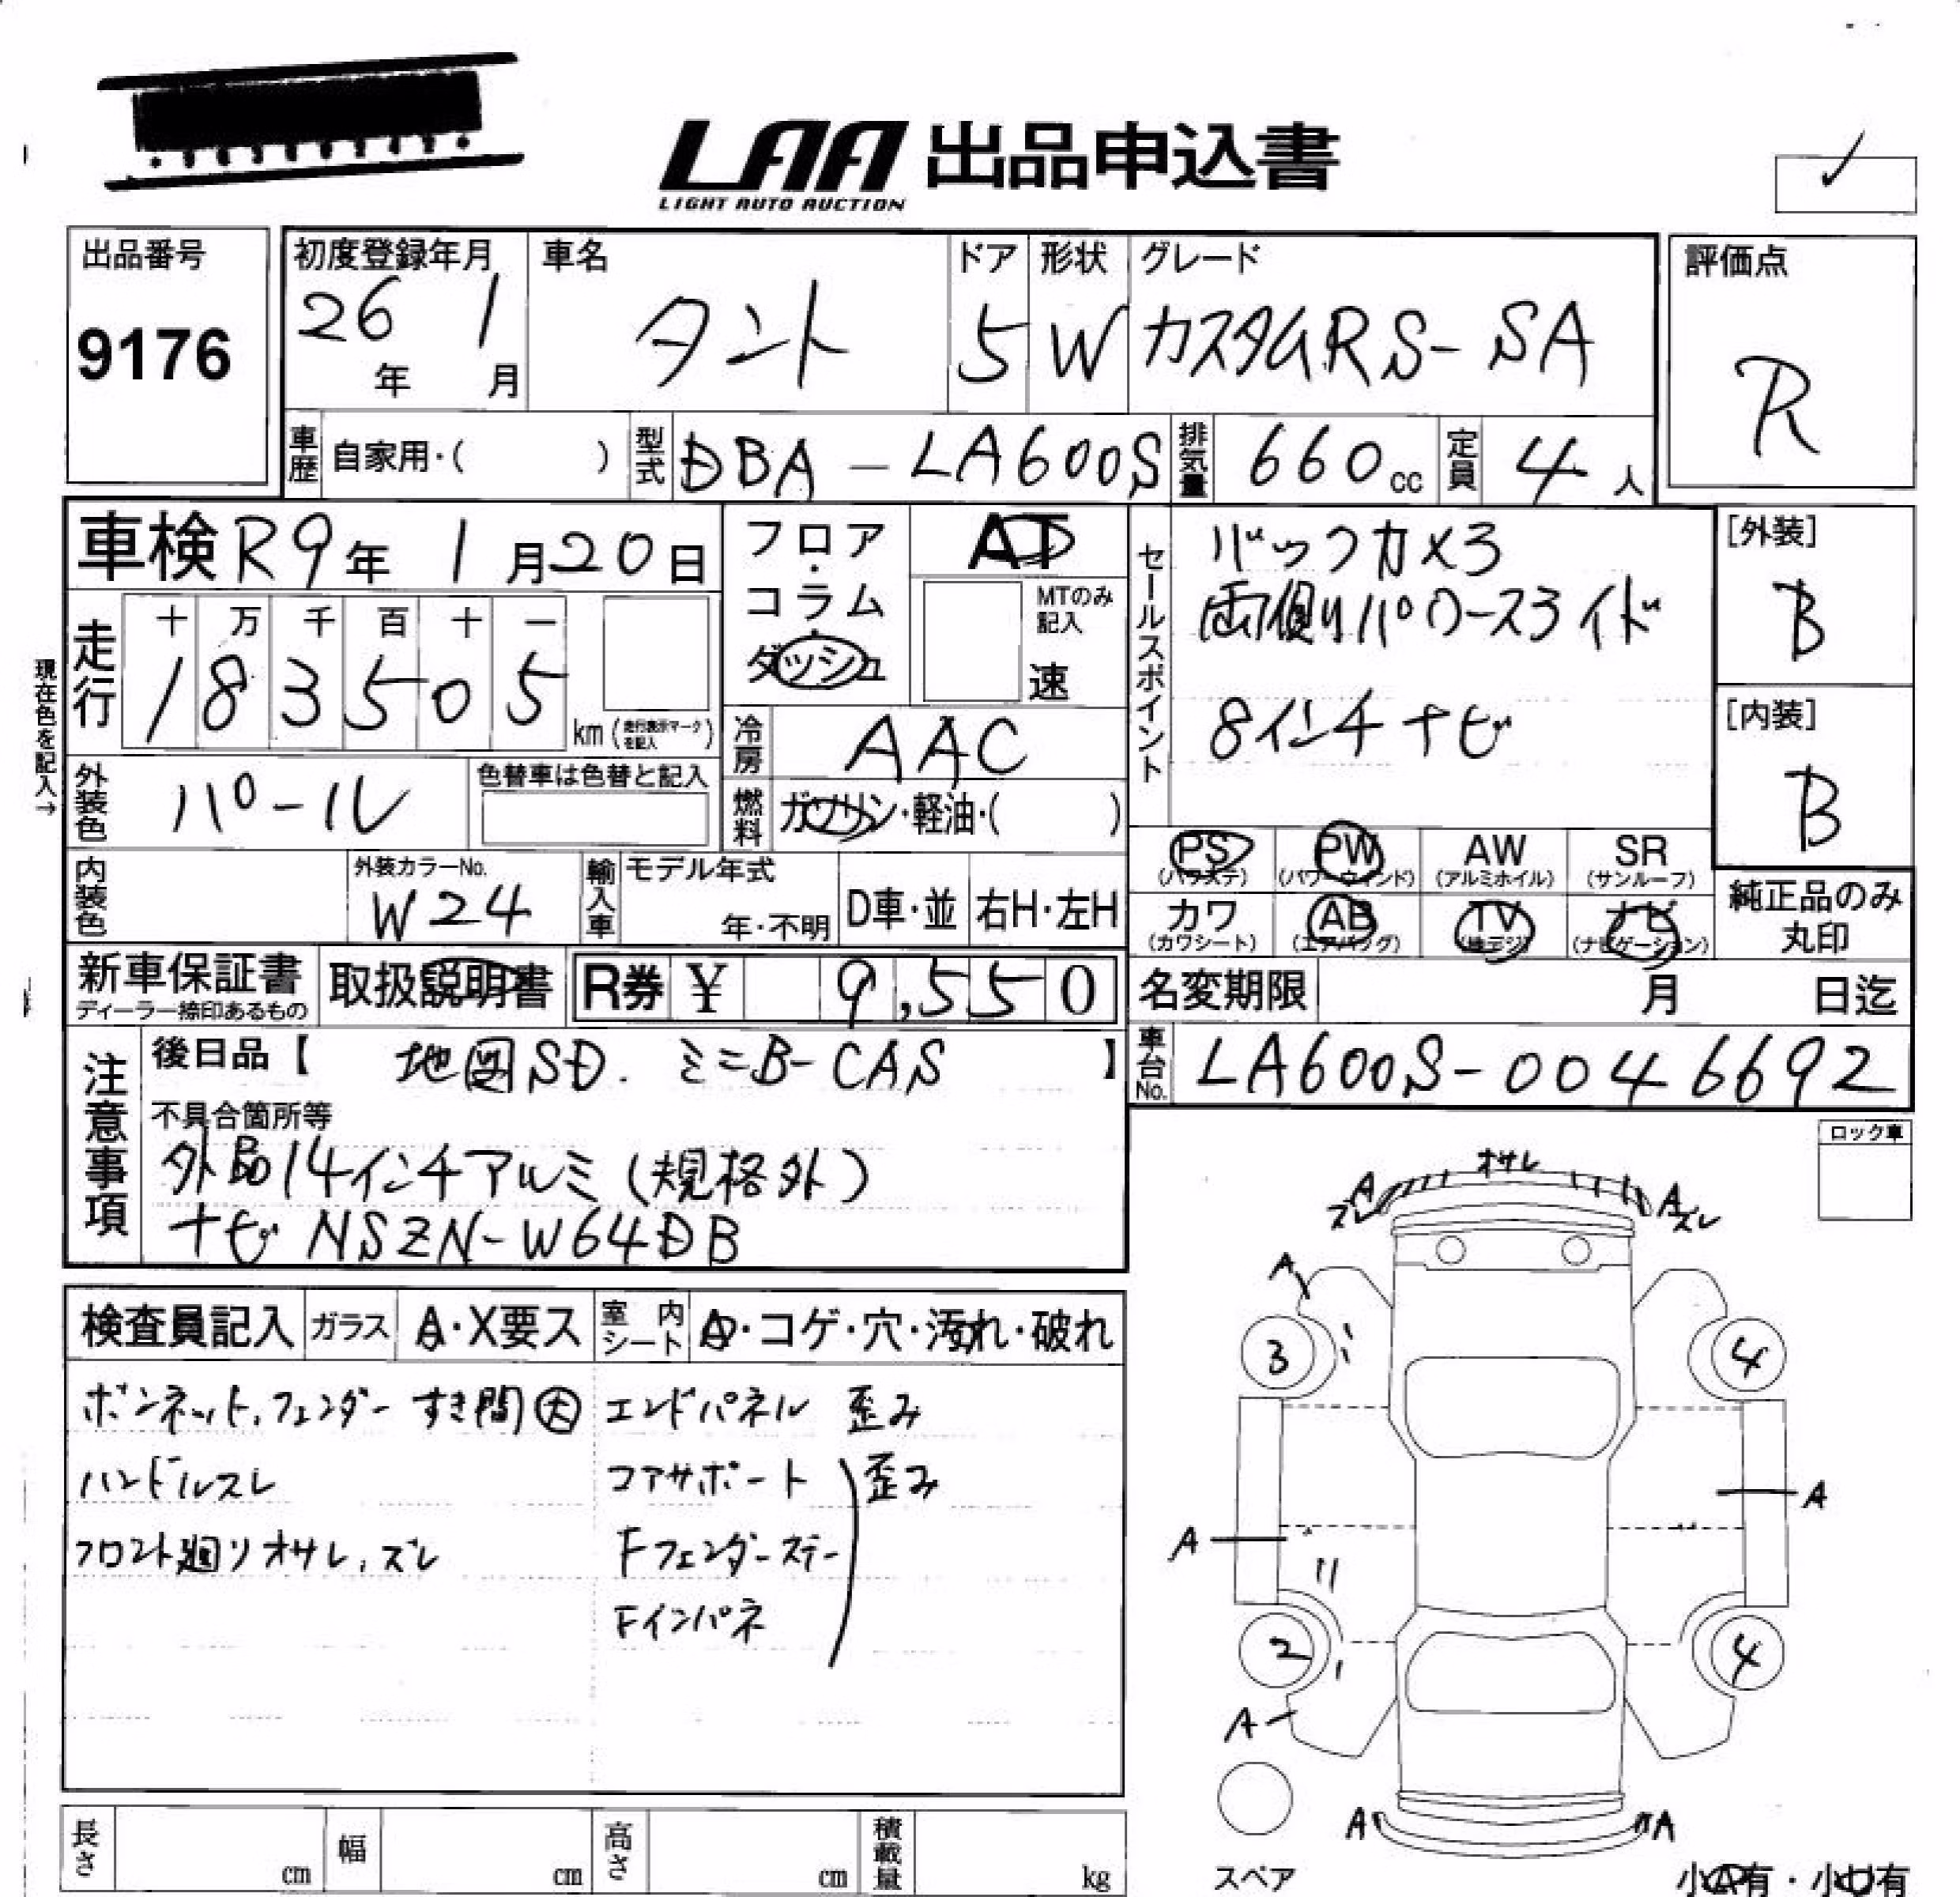 LAA 出品申込書
LIGHT AUTO AUCTION
出品番号
9176
初度登録年月
26年 1月
車名
タント
ドア
5
形状
W
グレード
カスタムRS-SA
評価点
R
車歴 自家用・( )
型式 DBA-LA600S
排気量 660cc
定員 4人
車検 R9年 1月20日
現在色を記入→
走行
十 万 千 百 十 一
1 8 3 5 0 5
km(走行表示マークを記入)
フロア・コラム・ダッシュ
AT
MTのみ記入
速
冷房 AAC
燃料 ガソリン・軽油・( )
セールスポイント
バックカメラ
両側パワースライド
8インチナビ
[外装]
B
[内装]
B
外装色 パール
色替車は色替と記入
内装色
外装カラーNo.
W24
輸入車
モデル年式
年・不明
D車・並
右H・左H
PS(パワステ)
PW(パワーウィンド)
AW(アルミホイル)
SR(サンルーフ)
カワ(カワシート)
AB(エアバッグ)
TV(地デジ)
ナビ(ナビゲーション)
純正品のみ丸印
新車保証書
ディーラー捺印あるもの
取扱説明書
R券 ¥ 9,550
名変期限 月 日迄
車台No. LA600S-0046692
注意事項
後日品【 地図SD. ミニB-CAS 】
不具合箇所等
外品14インチアルミ(規格外)
ナビ NSZN-W64DB
ロック車
検査員記入
ガラス A・X要ス
室内シート
・コゲ・穴・汚れ・破れ
ボンネット、フェンダー すき間大
ハンドルスレ
フロント廻りオサレ、ズレ
エンドパネル 歪み
コアサポート
Fフェンダーステー
Fインパネ
歪み
オサレ
A ズレ
A ズレ
A
3
4
A
A
2
4
A
スペア
A
A
長さ cm
幅 cm
高さ cm
積載量 kg
小A有・小U有